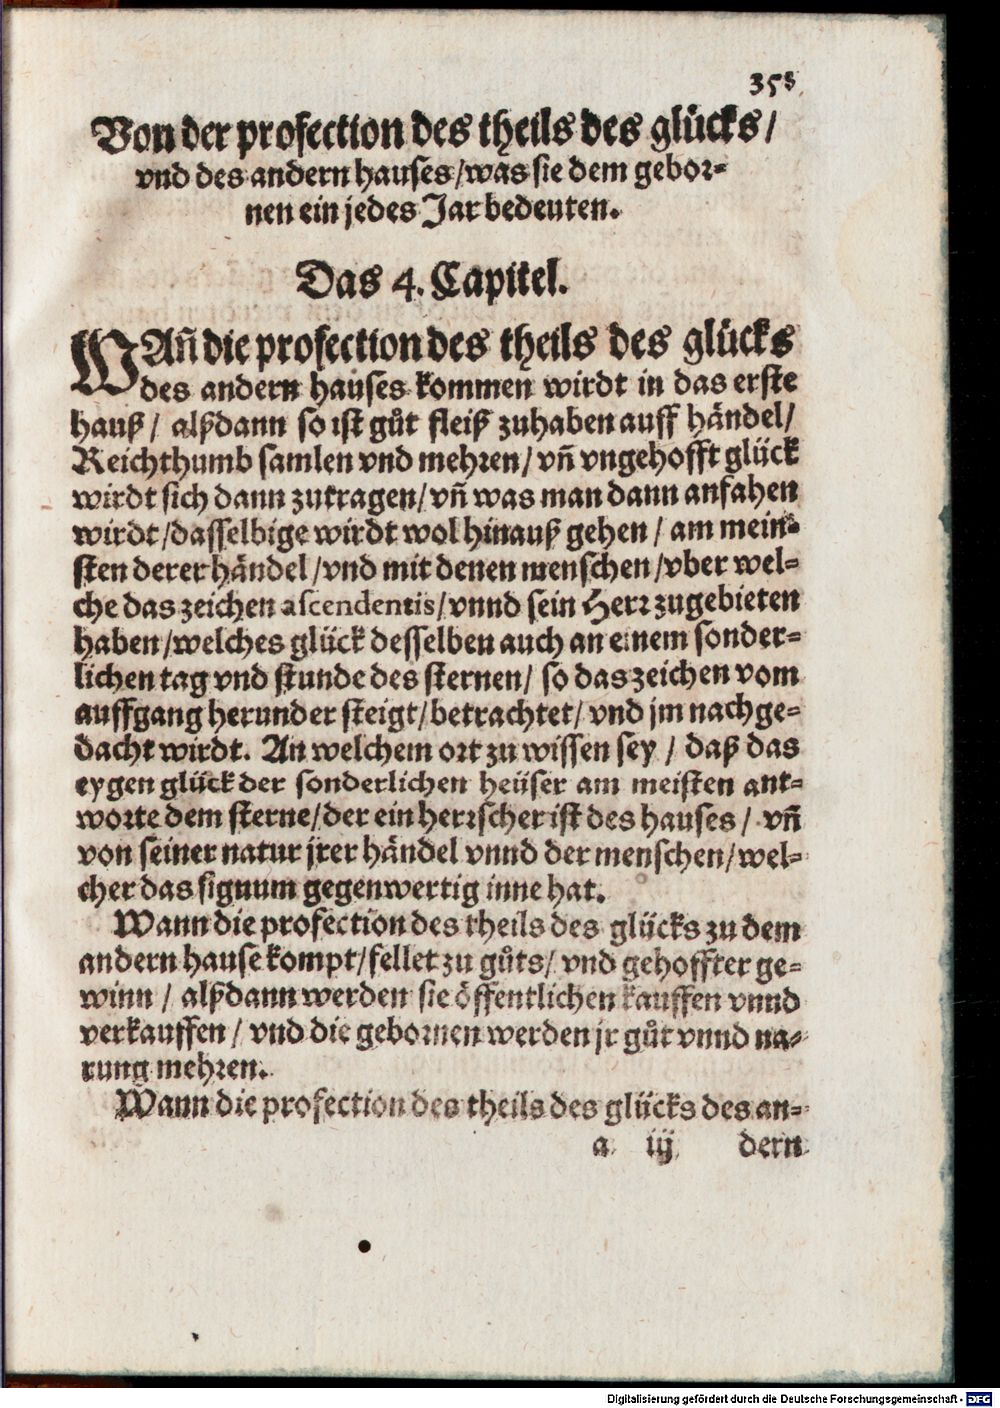 358
Von der profection des theils des glücks /
vnd des andern hauses / was sie dem gebor-
nen ein jedes Jar bedeuten.
Das 4. Capitel.
WAñ die profection des theils des glücks
des andern hauses kommen wirdt in das erste
hauß / alßdann so ist gůt fleiß zuhaben auff händel /
Reichthumb samlen vnd mehren / vñ vngehofft glück
wirdt sich dann zutragen / vñ was man dann anfahen
wirdt / dasselbige wirdt wol hinauß gehen / am mein-
sten derer händel / vnd mit denen menschen / vber wel-
che das zeichen ascendentis / vnnd sein Herr zugebieten
haben / welches glück desselben auch an einem sonder-
lichen tag vnd stunde des sternen / so das zeichen vom
auffgang herunder steigt / betrachtet / vnd jm nachge-
dacht wirdt. An welchem ort zu wissen sey / daß das
eygen glück der sonderlichen heüser am meisten ant-
worte dem sterne / der ein herrscher ist des hauses / vñ
von seiner natur jrer händel vnnd der menschen / wel-
cher das signum gegenwertig inne hat.
Wann die profection des theils des glücks zu dem
andern hause kompt / fellet zu gůts / vnd gehoffter ge-
winn / alßdann werden sie öffentlichen kauffen vnnd
verkauffen / vnd die gebornen werden jr gůt vnnd na-
rung mehren.
Wann die profection des theils des glücks des an-
a iij dern
Digitalisierung gefördert durch die Deutsche Forschungsgemeinschaft - DFG